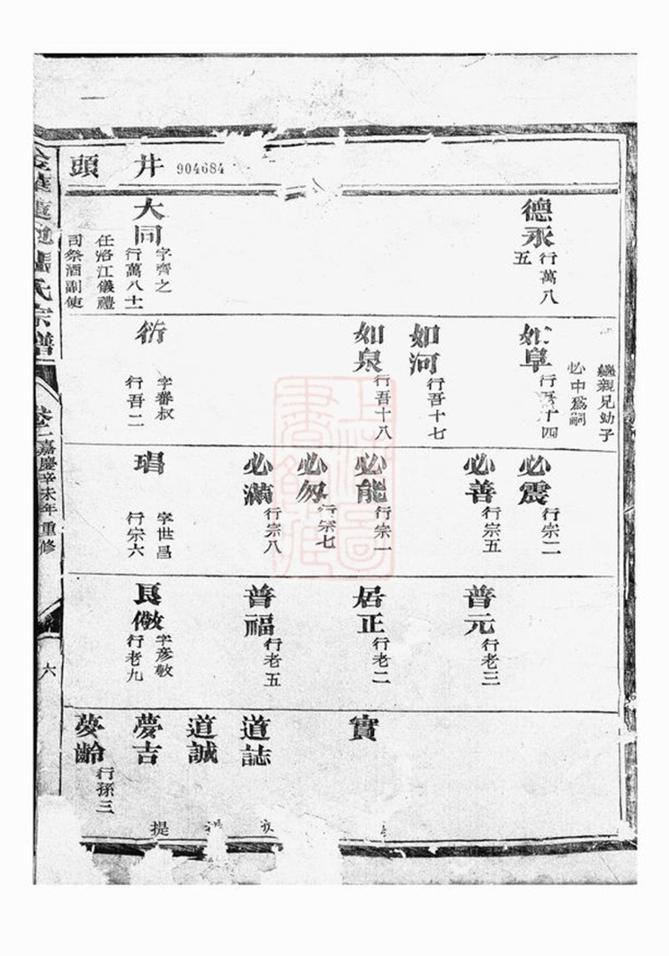 井頭
904684
德永
行萬八
五
大同
字齊之
行萬八十一
任洛江儀禮
司祭酒副使
繼親兄幼子
必中爲嗣
如阜
行吾十四
如河
行吾十七
如泉
行吾十八
衍
字蕃叔
行吾二
必震
行宗二
必善
行宗五
必能
行宗一
必芻
行宗七
必滿
行宗八
琩
字世昌
行宗六
普元
行老三
居正
行老二
普福
行老五
良儆
字彦敬
行老九
實
道誌
道誠
夢吉
夢齡
行孫三
提
氏宗譜
卷二
嘉慶辛未年重修
六